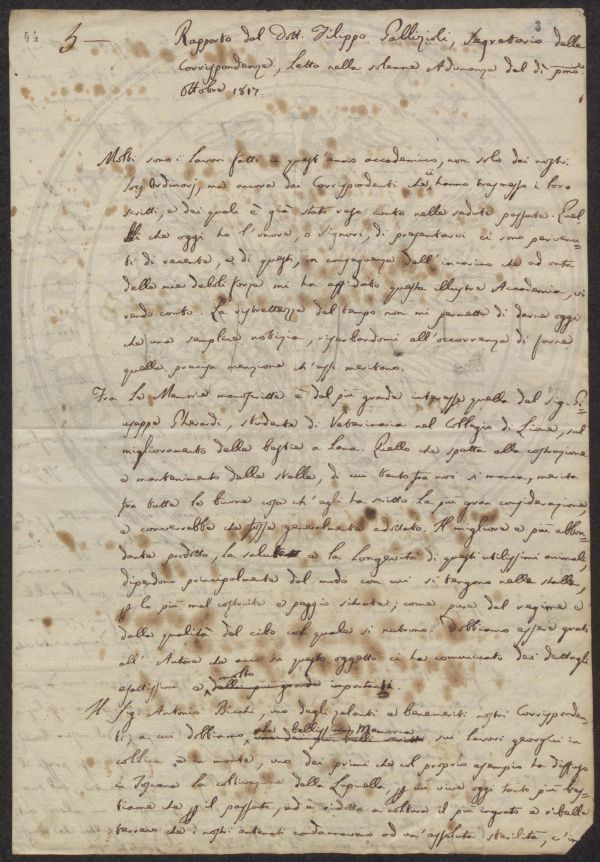 44
3
5 —
Rapporto del Dott. Filippo Gallizioli, Segretario delle
Corrispondenze, Letto nella solenne Adunanza del dì pmo.
Ottobre 1817.
Molti sono i lavori fatti in quest'anno accademico, non solo dai nostri
Socj Ordinarj, ma ancora dai Corrispondenti che ci hanno trasmesso i loro
scritti, e dei quali è già stato reso conto nelle sedute passate. Quel-
li che oggi ho l'onore, o Signori, di presentarvi ci sono pervenu-
ti di recente, e di questi, in conseguenza dell'incarico che ad onta
delle mie deboli forze mi ha affidato questa illustre Accademia, vi
rendo conto. La ristrettezza del tempo non mi permette di darne oggi
che una semplice notizia, riserbandomi all'occorrenza di farne
quella precisa menzione ch'esse meritano.
Fra le Memorie manoscritte è del più grande interesse quella del sig. Gi-
useppe Gherardi, studente di Veterinaria nel Collegio di Lione, sul
miglioramento delle bestie a lana. Quello che spetta alla costruzione
e mantenimento delle stalle, di cui tanto fra noi si manca, merita
fra tutte le buone cose ch'egli ha scritto la più gran considerazione,
e converrebbe che fosse generalmente adottato. Il migliore e più abbon-
dante prodotto, la salute e la longevità di questi utilissimi animali,
dipendono principalmente dal modo con cui si tengono nelle stalle,
p lo più mal costruite e peggio situate; come pure dal regime e
dalla qualità del cibo col quale si nutrono. Dobbiamo essere grati
all'Autore che anco su questo oggetto ci ha comunicato dei dettagli
esattissimi e molto della più grande importanti.
Il Sig. Antonio Bicchi, uno degli zelanti e benemeriti nostri Corrisponden-
ti, a cui dobbiamo una bellissima Memoria sui lavori georgici in
collina e in monte, uno dei primi che col proprio esempio ha diffuso
in Toscana la coltivazione della Lupinella, p cui vive oggi tanto più bes-
tiame che p il passato, ed è ridotto a coltura il più ingrato e ribelle
terreno che i nostri antenati condannavano ad un'assoluta sterilità, c'in-